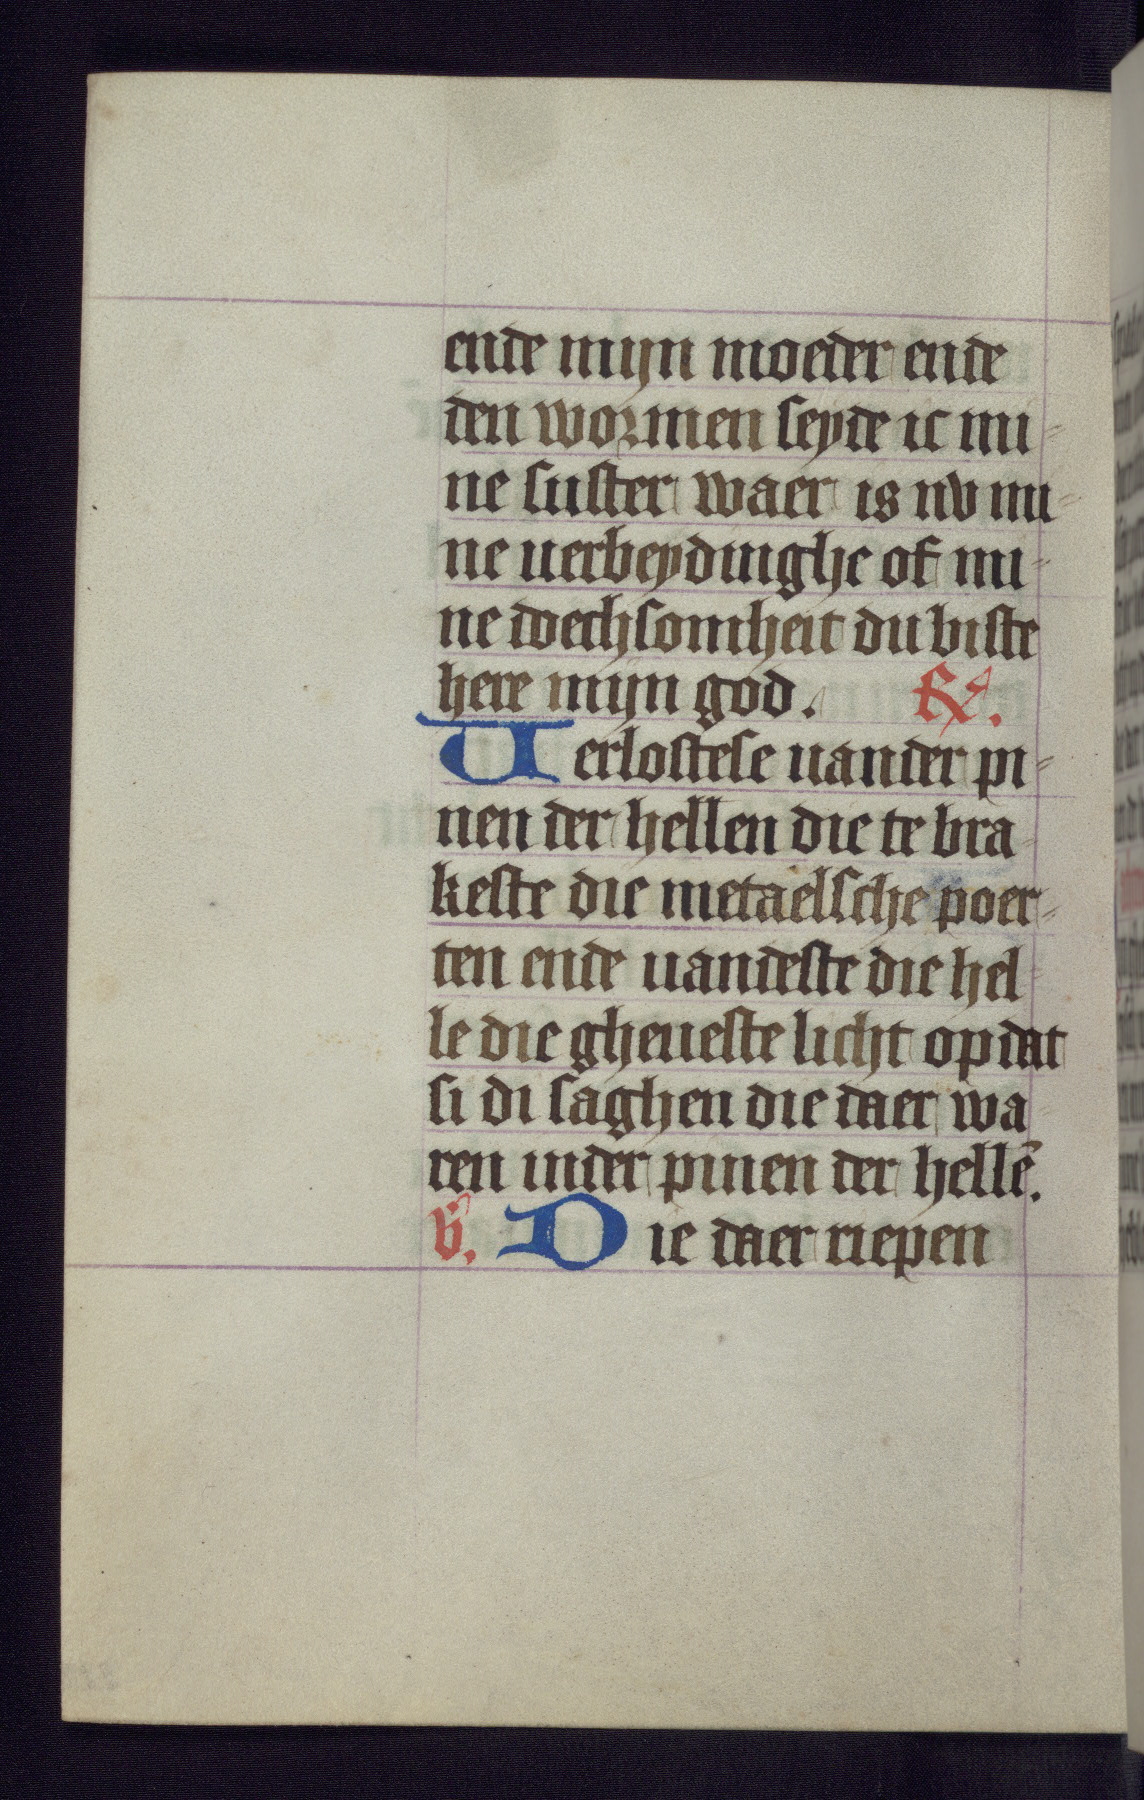 ende mijn moeder ende
den wormen seyde ic mi-
ne suster waer is nv mi-
ne uerbeydinghe of mi-
ne doechsomheit du biste
here mijn god. ℟.
Uerlostese uander pi-
nen der hellen die te bra-
keste die metaelsche poer-
ten ende uandeste die hel-
le die gheueste licht op dat
si di saghen die daer wa-
ren inder pinen der hellē.
℣. Die daer riepen